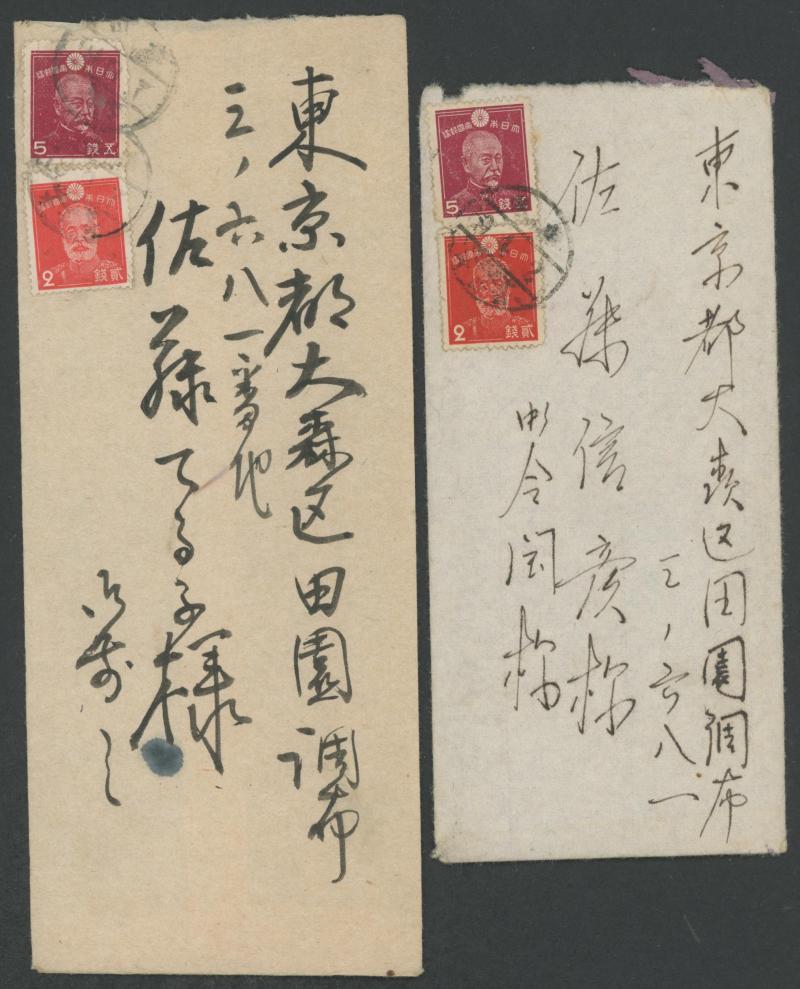 大日本帝國郵便
5 五錢
大日本帝國郵便
2 貳錢
東京都大森区田園調布
三ノ六八一番地
佐藤てる子様
大日本帝國郵便
5 五錢
大日本帝國郵便
2 貳錢
東京都大森区田園調布
三ノ六八一
佐藤信様
令閨様